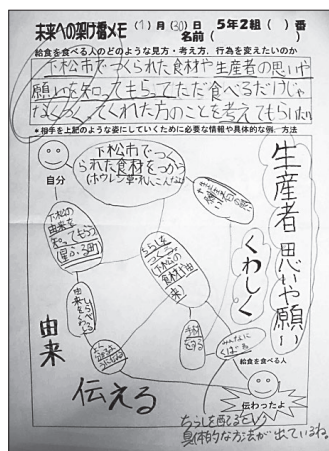 未来への架け橋メモ (1)月(30)日 5年2組( )番
名前( )
給食を食べる人のどのような見方・考え方、行為を変えたいのか
下松市でつくられた食材や生産者の思いや
願いを知ってもらってただ食べるだけじゃ
なくつくってくれた方のことを考えてもらいたい
*相手を上記のような姿にしていくために必要な情報や具体的な例、方法
自分
下松市でつく
られた食材をつかう
生産者 思いや願い
くわしく
下松の
由来を
知ってもらう
星ふる町
ちらしを
つくる
下松の
食材
由来
由来
伝える
みんなに
くばる
給食を食べる人
伝わったよ
ちらしを配るという
具体的な方法が出ているね。